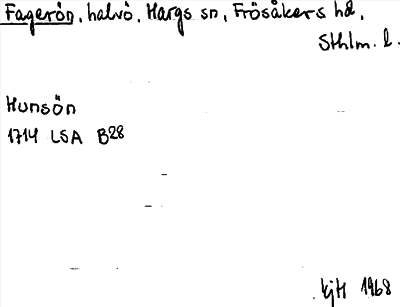 Fagerön, halvö, Hargs sn, Frösåkers hd,
Sthlm. l.
Hunsön
1714 LSA B28
kjH 1968